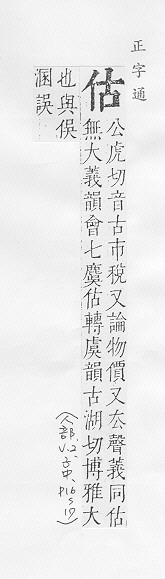 正字通
估
公虎切音古市稅又論物價又厺聲義同估
無大義韻會七麌估轉虞韻古湖切博雅大
也與俣
溷誤
(人部、V.2、子中、P16 s 17)